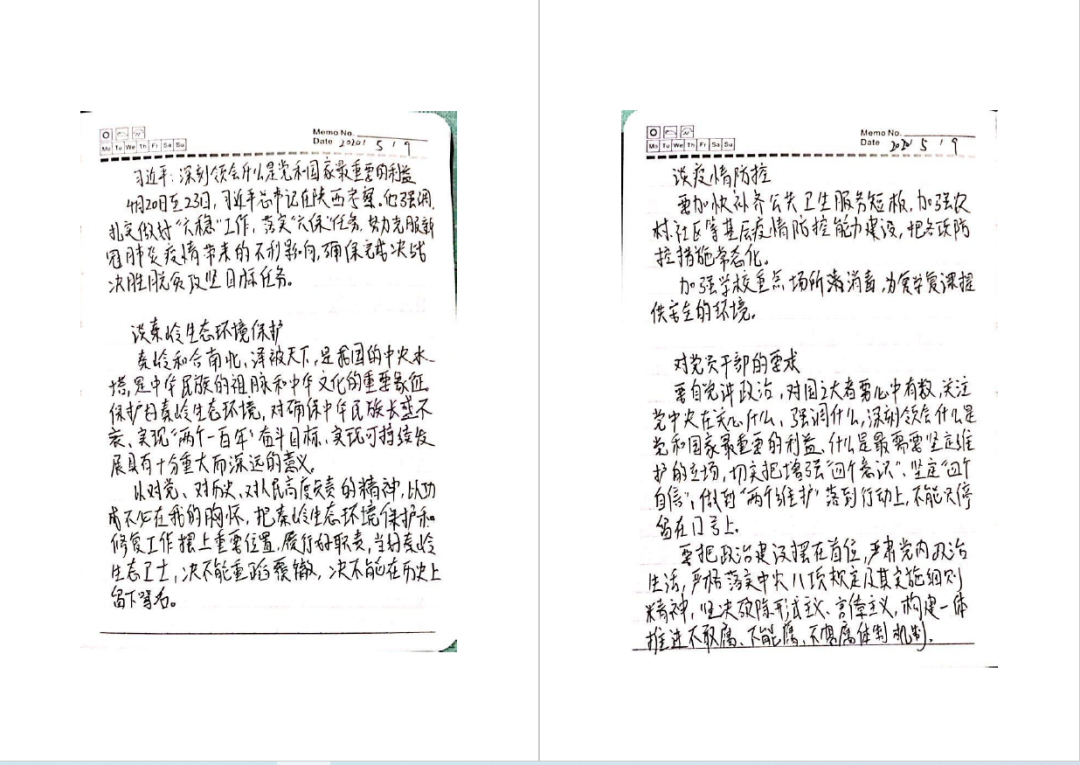 Memo No.
Mo Tu We Th Fr Sa Su
Date 2020 / 5 / 9
习近平:深刻领会什么是党和国家最重要的利益
4月20日至23日,习近平总书记在陕西考察,他强调,
扎实做好“六稳”工作,落实“六保”任务,努力克服新
冠肺炎疫情带来的不利影响,确保完成决战
决胜脱贫攻坚目标任务。
谈秦岭生态环境保护
秦岭和合南北、泽被天下,是我国的中央水
塔,是中华民族的祖脉和中华文化的重要象征。
保护好秦岭生态环境,对确保中华民族长盛不
衰、实现“两个一百年”奋斗目标、实现可持续发
展具有十分重大而深远的意义。
以对党、对历史、对人民高度负责的精神,以功
成不必在我的胸怀,把秦岭生态环境保护和
修复工作摆上重要位置,履行好职责,当好秦岭
生态卫士,决不能重蹈覆辙,决不能在历史上
留下骂名。
Memo No.
Mo Tu We Th Fr Sa Su
Date 2020 / 5 / 9
谈疫情防控
要加快补齐公共卫生服务短板,加强农
村、社区等基层疫情防控能力建设,把各项防
控措施常态化。
加强学校重点场所消毒,为复学复课提
供安全的环境。
对党员干部的要求
要自觉讲政治,对国之大者要心中有数,关注
党中央在关心什么、强调什么,深刻领会什么是
党和国家最重要的利益、什么是最需要坚定维
护的立场,切实把增强“四个意识”、坚定“四个
自信”、做到“两个维护”落到行动上,不能只停
留在口号上。
要把政治建设摆在首位,严肃党内政治
生活,严格落实中央八项规定及其实施细则
精神,坚决破除形式主义、官僚主义,构建一体
推进不敢腐、不能腐、不想腐体制机制。